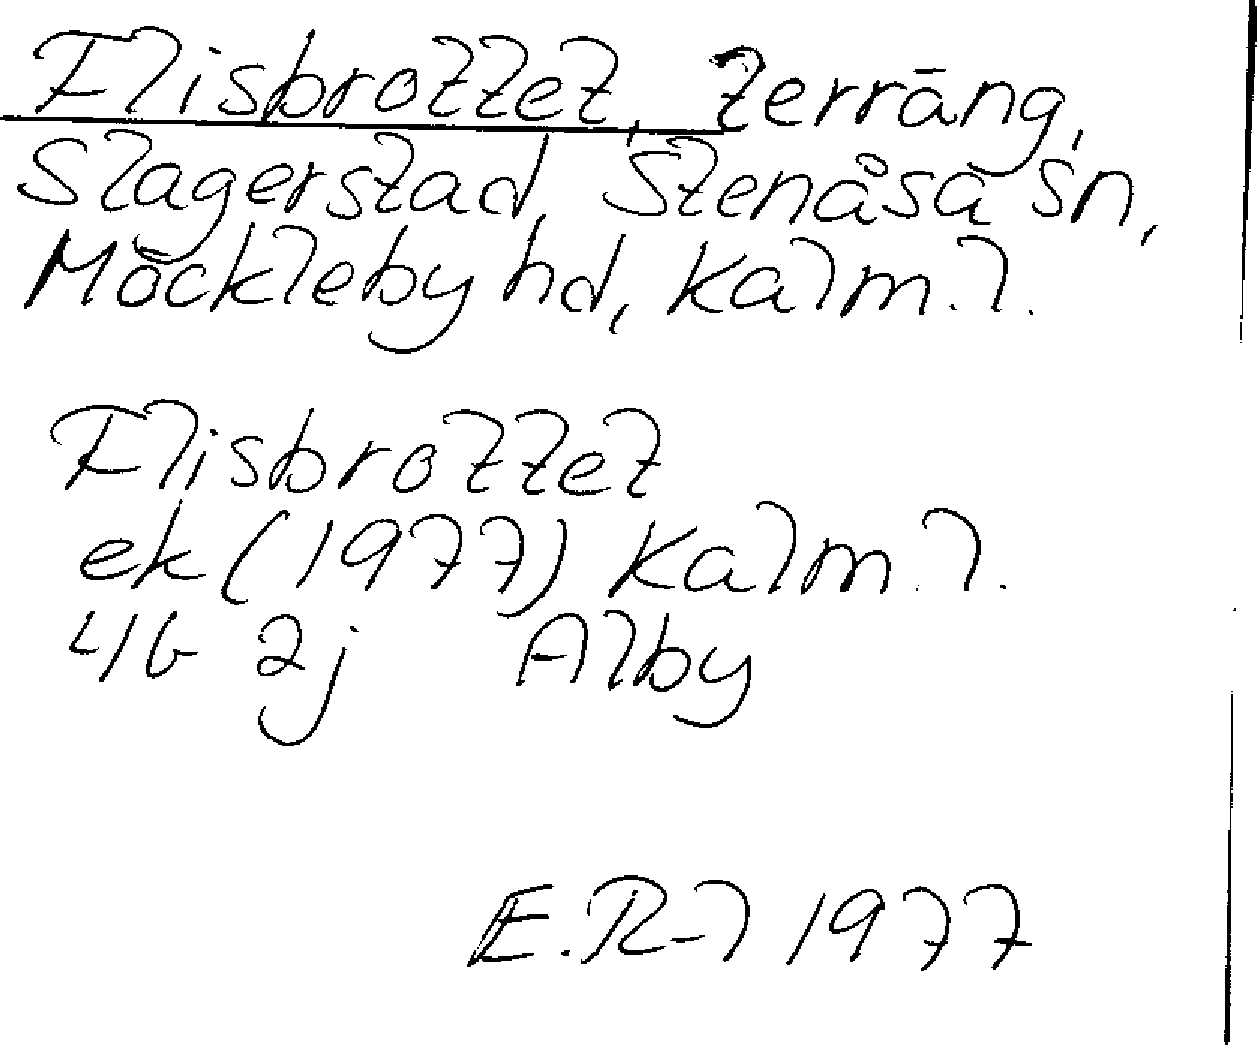 Flisbrottet, terräng,
Slagerstad, Stenåsa sn,
Möckleby hd, Kalm. l.
Flisbrottet
ek (1977) Kalm. l.
4G 2j Alby
E.R-l 1977